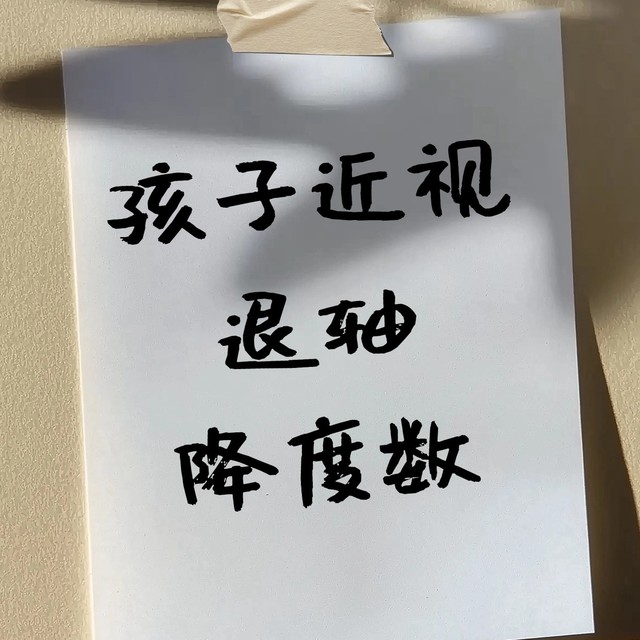 孩子近视
退轴
降度数